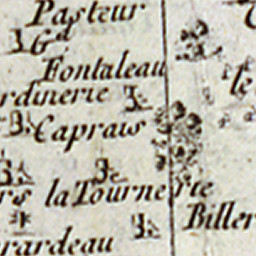 Pasteur
Gd.
Fontaleau
le
rdinerie
Caprais
rs la Tournerie
Biller
rardeau